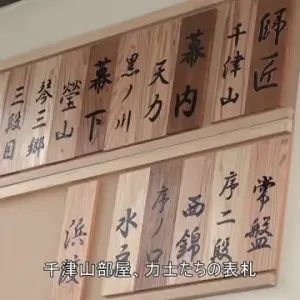 師匠
千津山
幕内
天力
黒ノ川
幕下
瑩山
琴三郷
三段目
常盤
序二段
西錦
序ノ口
水戸
浜渡
千津山部屋、力士たちの表札